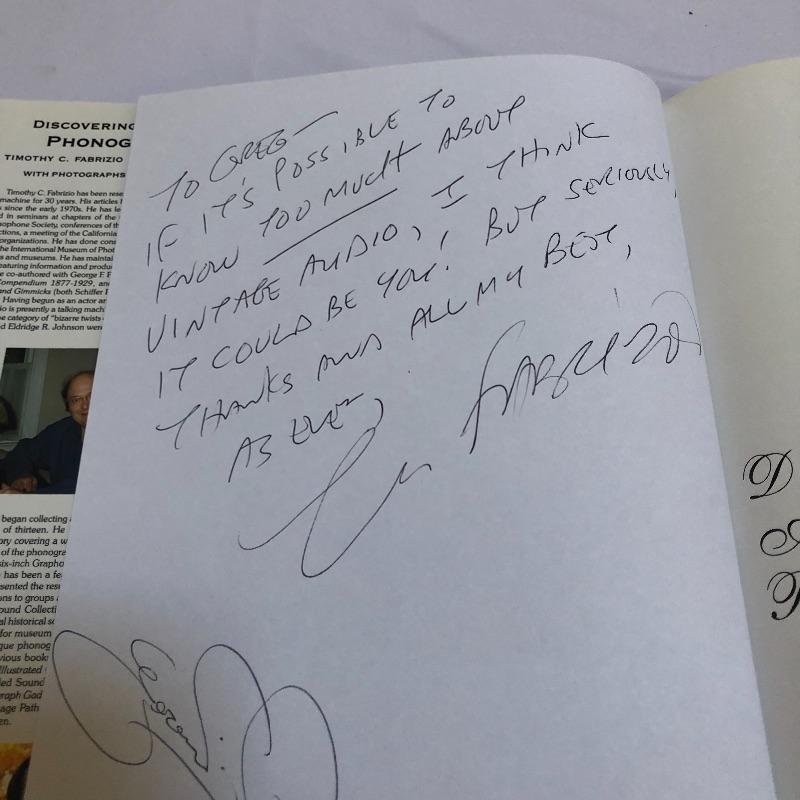 DISCOVERING
PHONOG
TIMOTHY C. FABRIZIO
WITH PHOTOGRAPHS
Timothy C. Fabrizio has been rese
machine for 30 years. His articles
since the early 1970s. He has le
d in seminars at chapters of the
ophone Society, conferences of th
ctions, a meeting of the California
organizations. He has done cons
he International Museum of Phot
s and museums. He has maintai
eaturing information and produ
e co-authored with George F. P
Compendium 1877-1929, an
and Gimmicks (both Schiffer P
Having begun as an actor an
io is presently a talking mach
e category of "bizarre twists
d Eldridge R. Johnson were
began collecting
of thirteen. He
ory covering a w
of the phonogra
six-inch Grapho
has been a fe
sented the res
ons to groups
ound Collecti
al historical so
for museum
que phonog
vious book
Illustrated
led Sound
raph Gad
age Path
en.
TO GREG—
IF IT'S POSSIBLE TO
KNOW TOO MUCH ABOUT
VINTAGE AUDIO, I THINK
IT COULD BE YOU! BUT SERIOUSLY,
THANKS AND ALL MY BEST,
AS EVER,
FABRIZIO
D
A
P